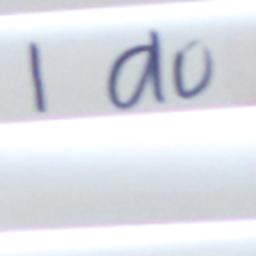 I do